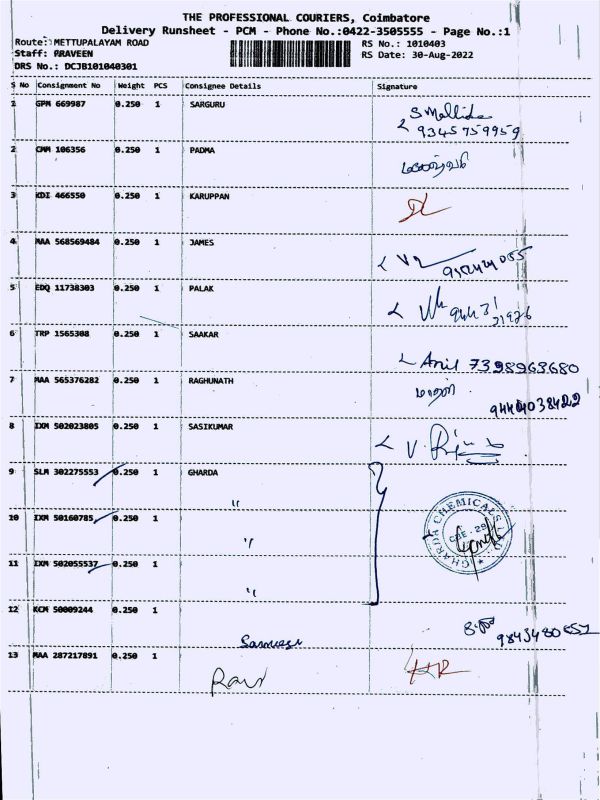 THE PROFESSIONAL COURIERS, Coimbatore
Delivery Runsheet - PCM - Phone No.:0422-3505555 - Page No.:1
Route: METTUPALAYAM ROAD
RS No.: 1010403
Staff: PRAVEEN
RS Date: 30-Aug-2022
DRS No.: DCJB101040301
S No Consignment No Weight PCS Consignee Details Signature
1 GPM 669987 0.250 1 SARGURU
9345759959
2 CMM 106356 0.250 1 PADMA
3 KDI 466550 0.250 1 KARUPPAN
4 MAA 568569484 0.250 1 JAMES
5 EDQ 11738303 0.250 1 PALAK
6 TRP 1565308 0.250 1 SAAKAR
Anil 7398963680
7 MAA 565376282 0.250 1 RAGHUNATH
8 IXM 502023805 0.250 1 SASIKUMAR
9 SLM 302275553 0.250 1 GHARDA
"
10 IXM 50160785 0.250 1
"
11 IXM 502055537 0.250 1
"
GHARDA CHEMICALS LTD. CBE - 29
12 KCM 50009244 0.250 1
13 MAA 287217891 0.250 1
Ravi